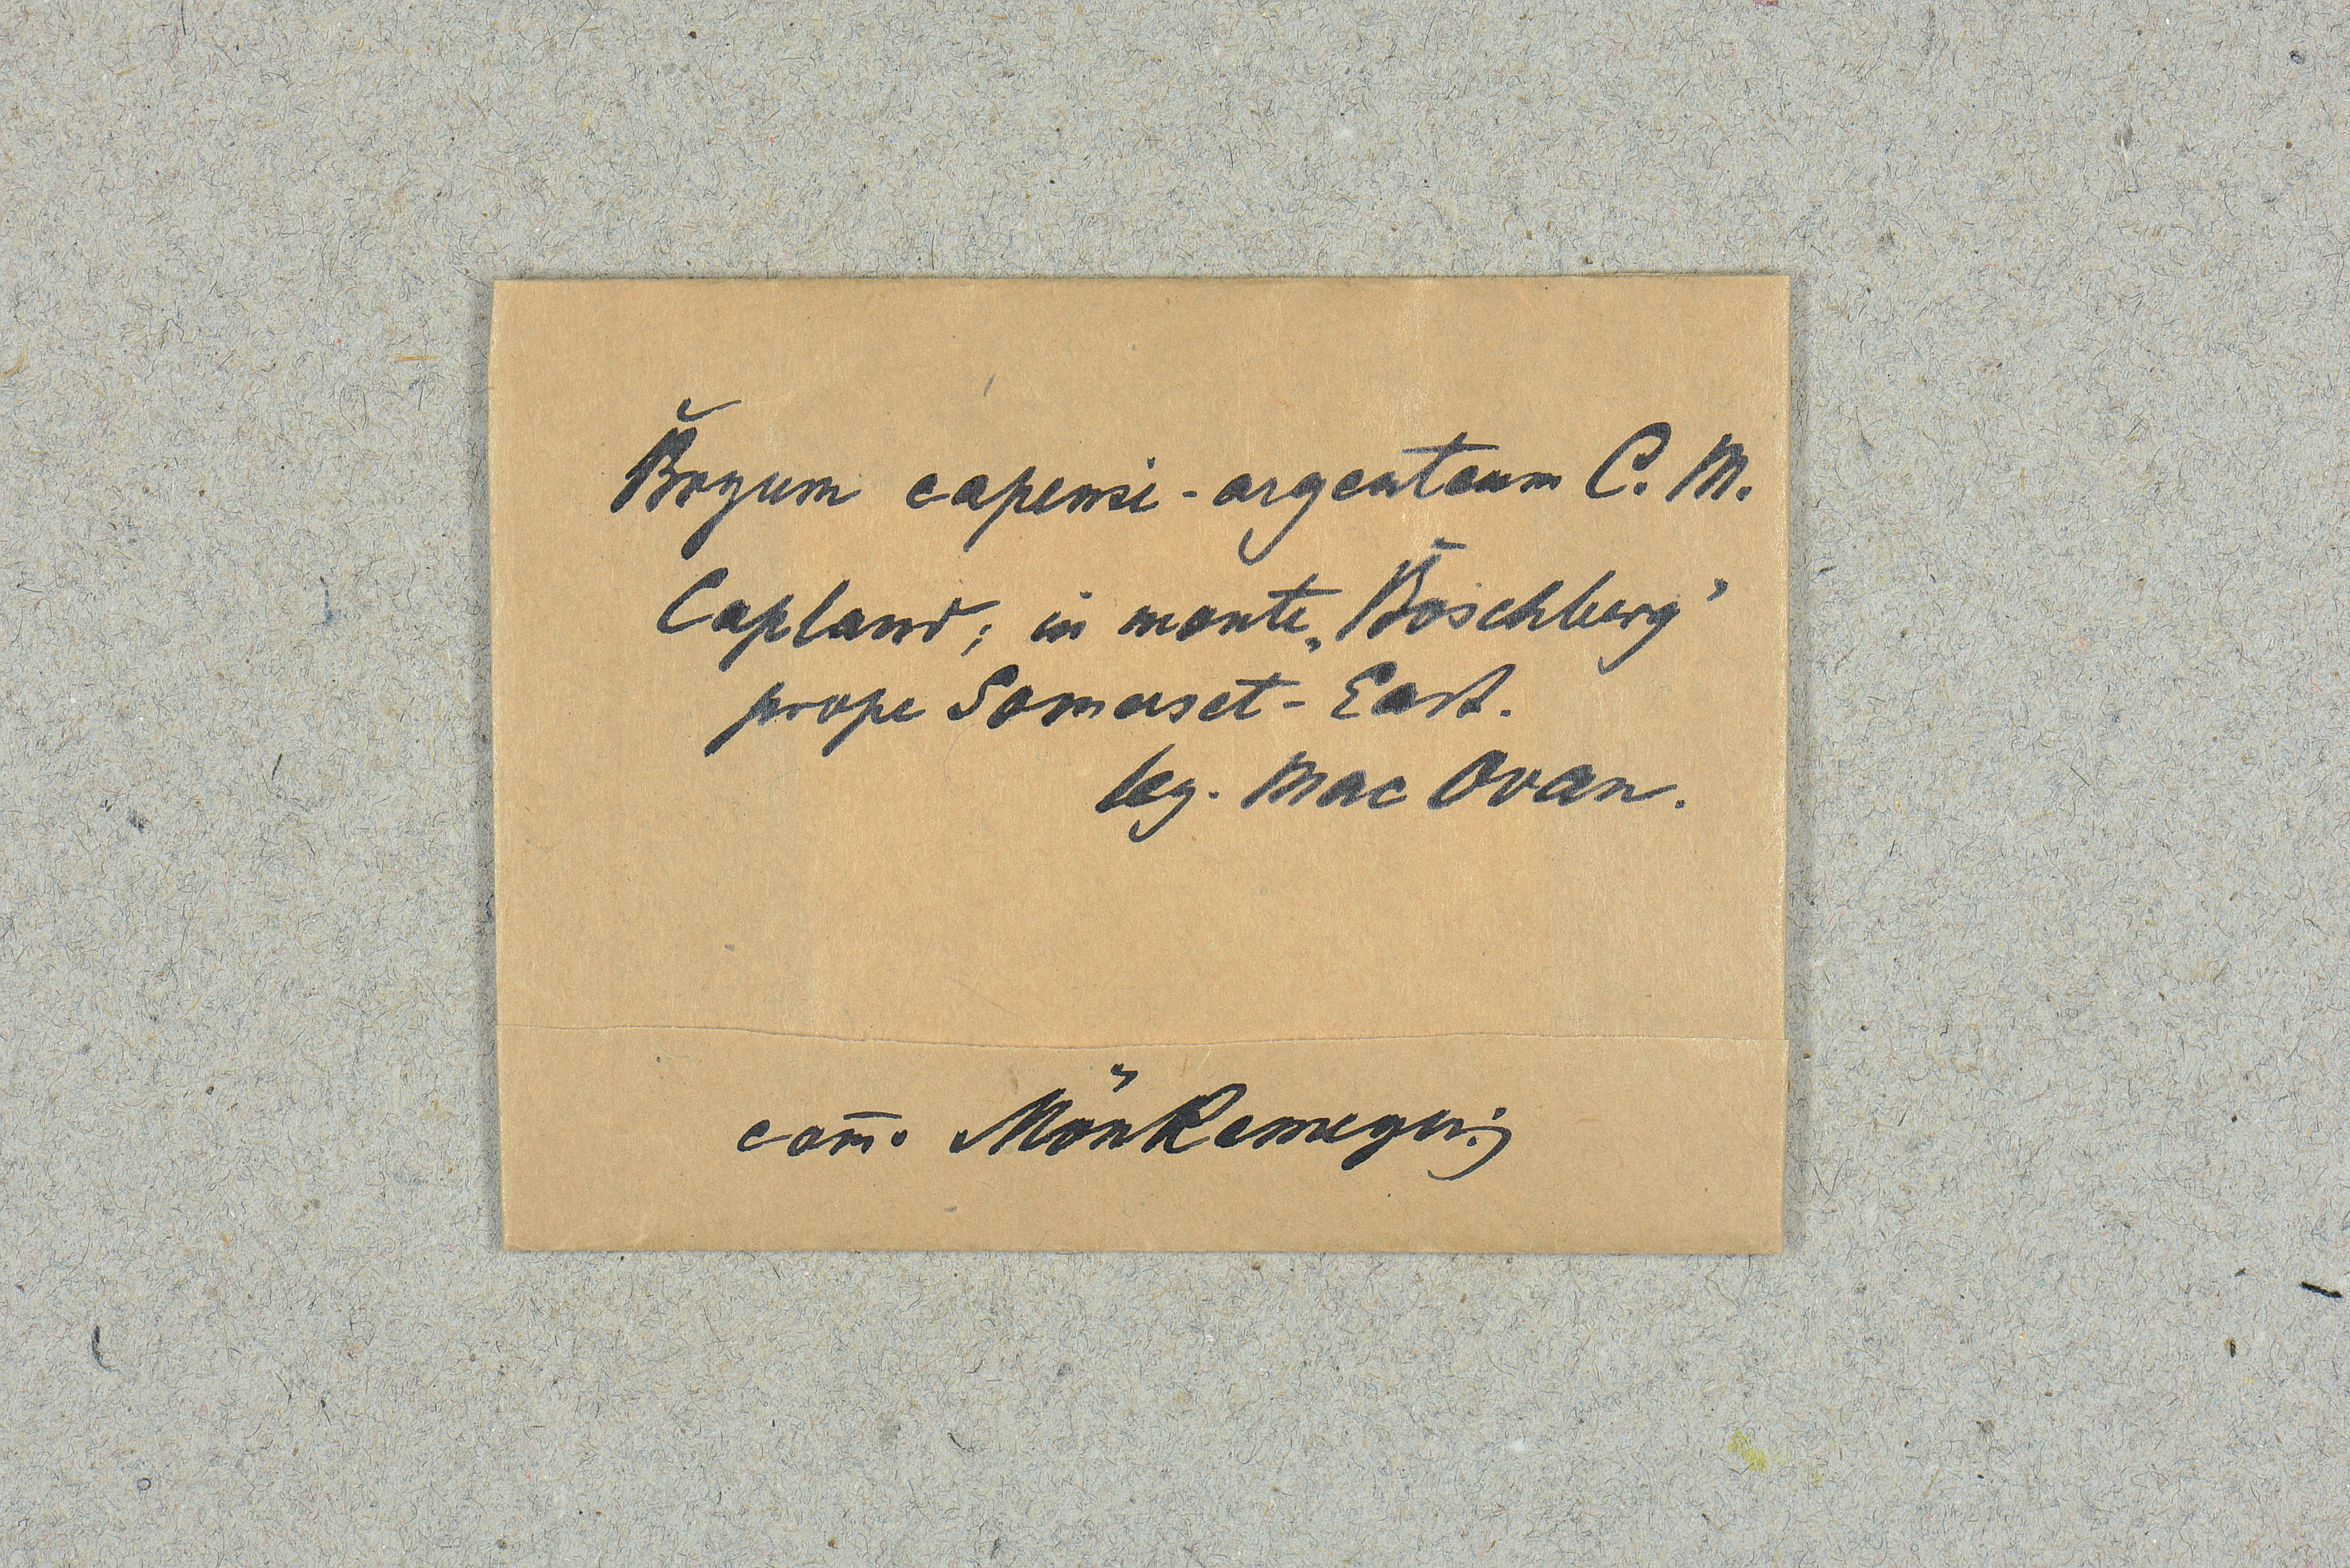 Bryum capensi-argenteum C. M.
Capland; in monte „Boschberg"
prope Somerset-East.
leg. Mac Ovan.
com̄. Mönkemeyer